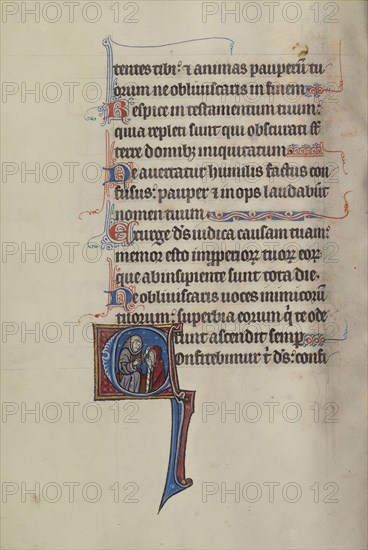 tentes tibi: & animas pauperū tu
orum ne obliuiscaris in finem
Respice in testamentum tuum:
quia repleti sunt qui obscurati st̄
terre domib; iniquitatum.
Ne auertatur humilis factus con
fusus: pauper & inops laudabūt
nomen tuum.
Exurge dn̄s iudica causam tuam:
memor esto improperiorꝝ tuorꝝ eorꝝ
que ab insipiente sunt tota die.
Ne obliuiscaris uoces inimicorū
tuorum: superbia eorum qͥ te ode
runt ascendit semp̄
Confitebimur t̄ ds: confi
PHOTO 12